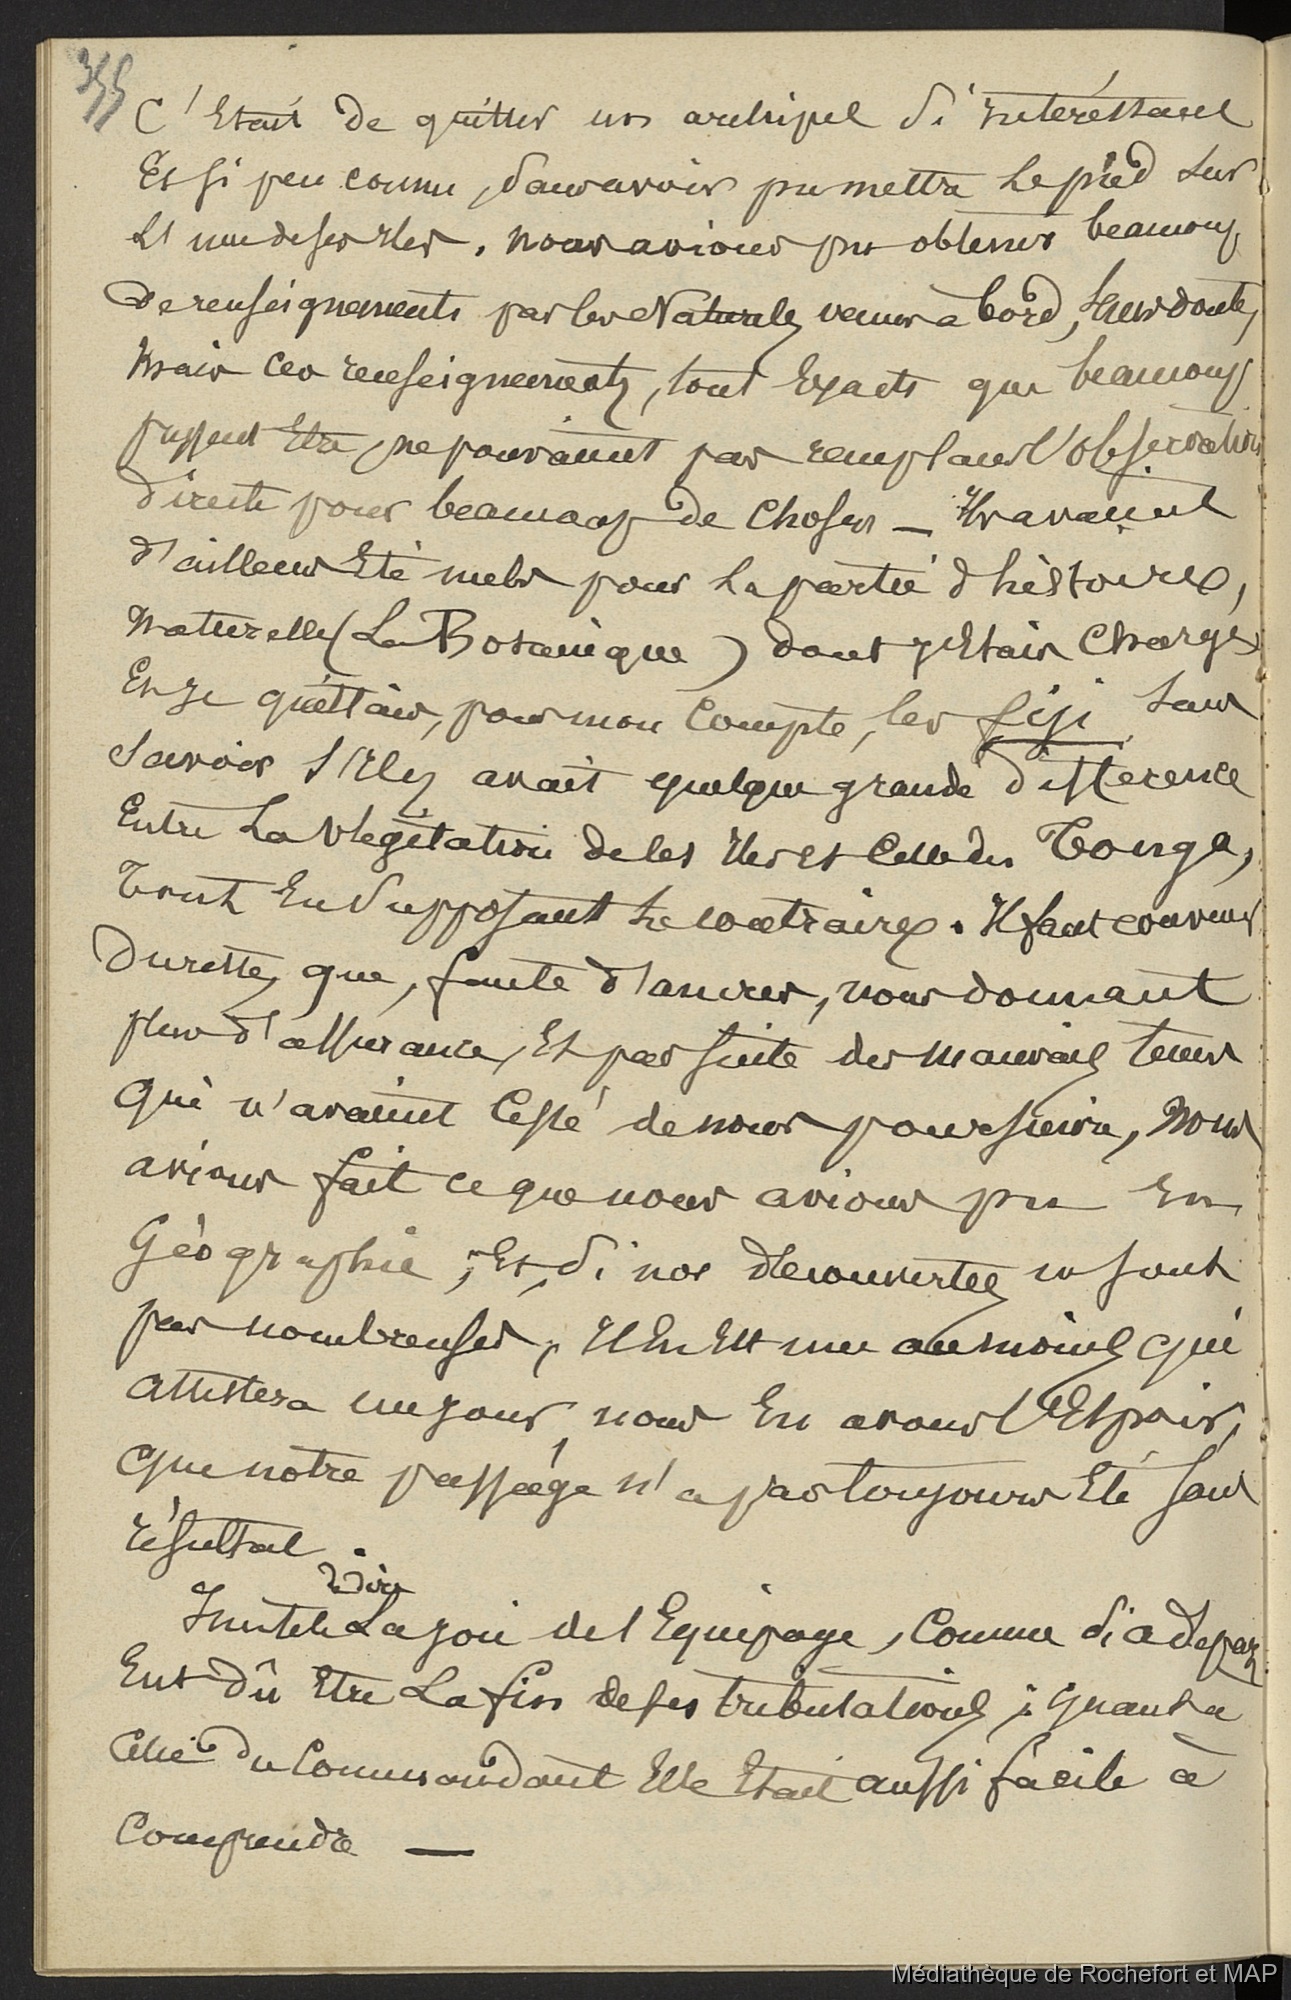 355
C'était de quitter un archipel si intéressant
Et si peu connu, sans avoir pu mettre le pied sur
une de ses Iles. nous avions pu obtenir beaucoup
de renseignements par les Naturels venus à bord, sans doute,
mais ces renseignements, tout exacts que beaucoup
pussent Etre, ne pouvaient pas remplacer l'observation
directe pour beaucoup de choses — Ils avaient
d'ailleurs Eté nuls pour la partie d'histoire,
naturelle (La Botanique) dont j'étais chargé
Et je quittais, pour mon compte, les fiji sans
savoir s'il y avait quelque grande différence
Entre La végétation de ces Iles et celle des Tonga,
Tout En supposant le contraire. Il faut convenir
du reste, que, faute d'ancres, nous donnant
plus d'assurance, Et par suite des mauvais tems
qui n'avaient cessé de nous poursuivre, nous
avions fait ce que nous avions pu En
Géographie ; Et si nos découvertes ne sont
pas nombreuses, Il En Est une au moins qui
attestera un jour, nous En avons l'Espoir,
que notre passage n'a pas toujours Eté sans
résultat.
Inutile de dire La joie de l'Equipage, comme si ce départ
Eut dû Etre La fin de ses tribulations ; quant a
celle du Commandant Elle Etait aussi facile à
comprendre —
Médiathèque de Rochefort et MAP